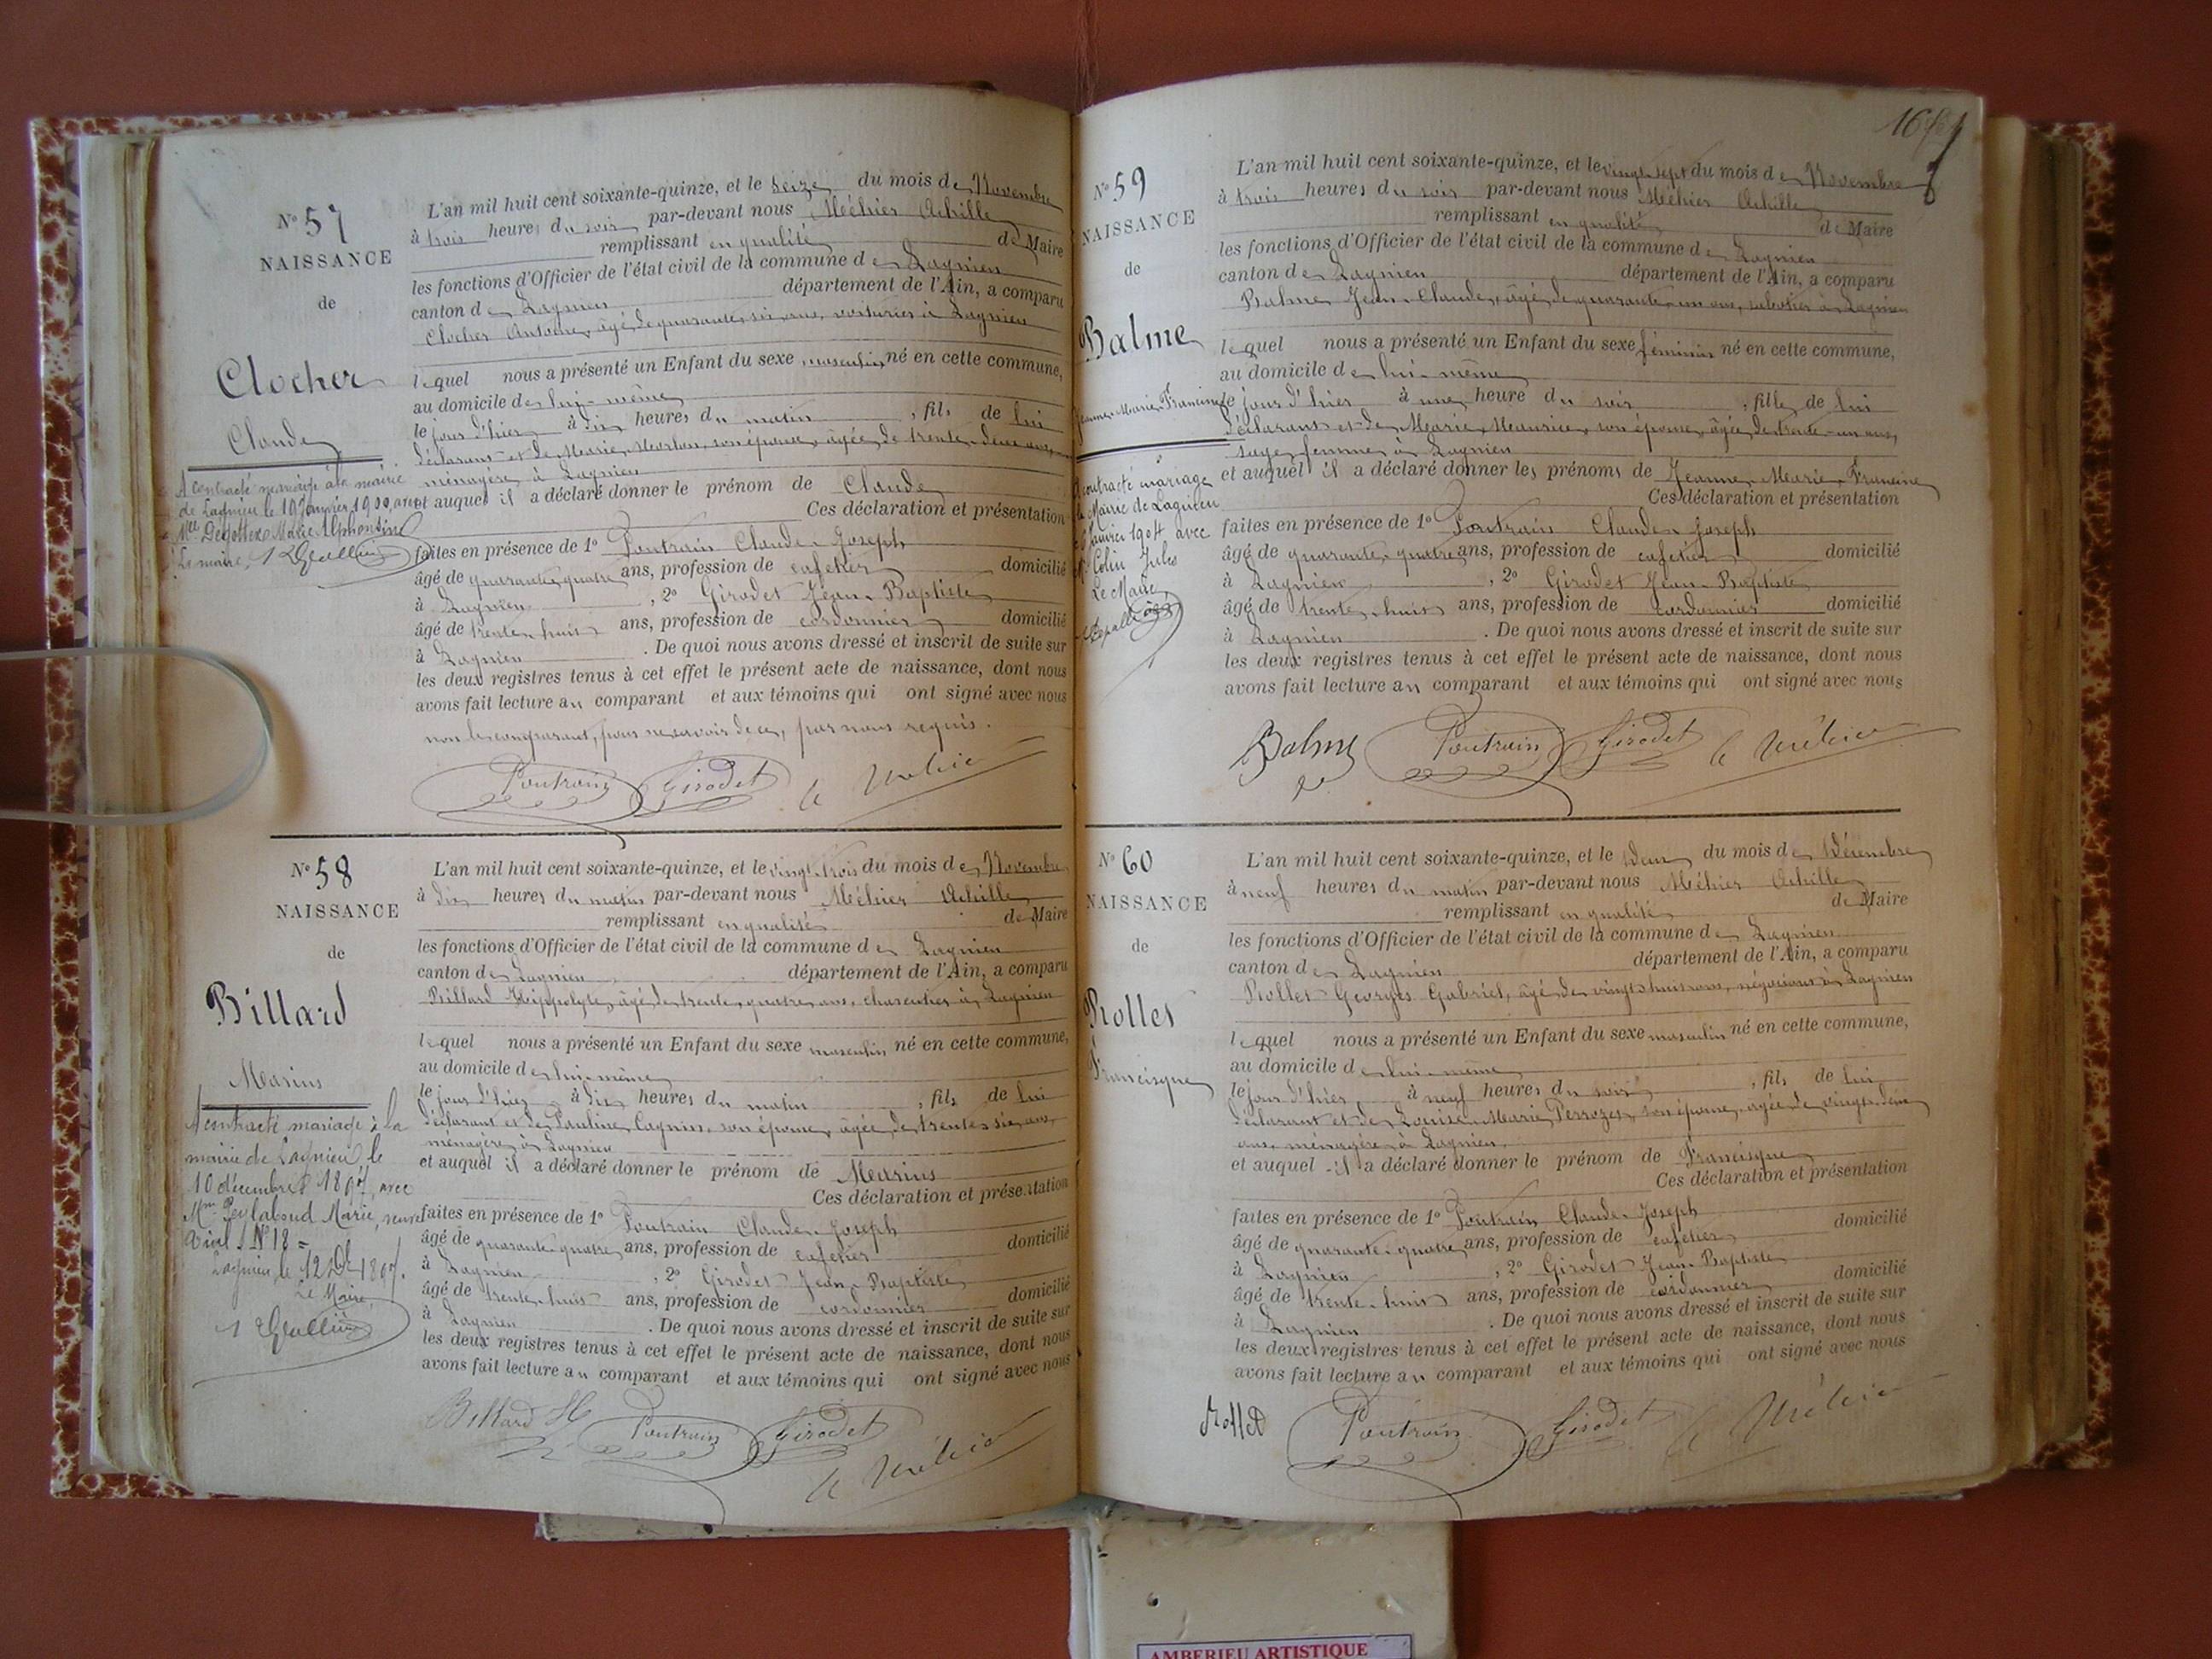 N° 57
NAISSANCE
de
Clocher
Claude
A contracté mariage à la mairie
de Lagnieu le 10 janvier 1900, avec
Mlle Degottex Marie Alphonsine
Le maire,
L'an mil huit cent soixante-quinze, et le seize du mois de Novembre
à trois heures du soir par-devant nous Méhier Achille
remplissant en qualité de Maire
les fonctions d'Officier de l'état civil de la commune de Lagnieu
canton de Lagnieu département de l'Ain, a comparu
Clocher Antoine, âgé de quarante-six ans, voiturier à Lagnieu
lequel nous a présenté un Enfant du sexe masculin né en cette commune,
au domicile de lui-même
le jour d'hier à dix heures du matin, fils de lui
déclarant et de Marie, son épouse, âgée de trente-deux ans,
ménagère à Lagnieu
et auquel il a déclaré donner le prénom de Claude
Ces déclaration et présentation
faites en présence de 1° Poutrain Claude-Joseph
âgé de quarante-quatre ans, profession de cafetier domicilié
à Lagnieu, 2° Girodet Jean-Baptiste
âgé de trente-huit ans, profession de cordonnier domicilié
à Lagnieu. De quoi nous avons dressé et inscrit de suite sur
les deux registres tenus à cet effet le présent acte de naissance, dont nous
avons fait lecture au comparant et aux témoins qui ont signé avec nous
non le comparant, pour ne savoir de ce, par nous requis.
Poutrain Girodet A Méhier
N° 58
NAISSANCE
de
Billard
Marius
A contracté mariage à la
mairie de Lagnieu le
10 décembre 1897, avec
Mme Marie, veuve
N° 18 =
Lagnieu, le 12 Xbre 1897.
Le Maire
L'an mil huit cent soixante-quinze, et le vingt-trois du mois de Novembre
à dix heures du matin par-devant nous Méhier Achille
remplissant en qualité de Maire
les fonctions d'Officier de l'état civil de la commune de Lagnieu
canton de Lagnieu département de l'Ain, a comparu
Billard Hippolyte, âgé de trente-quatre ans, charpentier à Lagnieu
lequel nous a présenté un Enfant du sexe masculin né en cette commune,
au domicile de lui-même
le jour d'hier à dix heures du matin, fils de lui
déclarant et de Pauline, son épouse, âgée de trente-six ans,
ménagère à Lagnieu
et auquel il a déclaré donner le prénom de Marius
Ces déclaration et présentation
faites en présence de 1° Poutrain Claude-Joseph
âgé de quarante-quatre ans, profession de cafetier domicilié
à Lagnieu, 2° Girodet Jean-Baptiste
âgé de trente-huit ans, profession de cordonnier domicilié
à Lagnieu. De quoi nous avons dressé et inscrit de suite sur
les deux registres tenus à cet effet le présent acte de naissance, dont nous
avons fait lecture au comparant et aux témoins qui ont signé avec nous
Billard H Poutrain Girodet
A Méhier
N° 59
NAISSANCE
de
Balme
Jeanne-Marie-Francine
A contracté mariage
à la Mairie de Lagnieu
janvier 1904 avec
Mr Colin Jules
Le Maire,
L'an mil huit cent soixante-quinze, et le vingt-sept du mois de Novembre
à trois heures du soir par-devant nous Méhier Achille
remplissant en qualité de Maire
les fonctions d'Officier de l'état civil de la commune de Lagnieu
canton de Lagnieu département de l'Ain, a comparu
Balme Jean-Claude, âgé de quarante-un ans, sabotier à Lagnieu
lequel nous a présenté un Enfant du sexe féminin né en cette commune,
au domicile de lui-même
le jour d'hier à une heure du soir, fille de lui
déclarant et de Marie Maurice, son épouse, âgée de trente-un ans,
sage-femme à Lagnieu
et auquel il a déclaré donner les prénoms de Jeanne Marie Francine
Ces déclaration et présentation
faites en présence de 1° Poutrain Claude-Joseph
âgé de quarante-quatre ans, profession de cafetier domicilié
à Lagnieu, 2° Girodet Jean-Baptiste
âgé de trente-huit ans, profession de cordonnier domicilié
à Lagnieu. De quoi nous avons dressé et inscrit de suite sur
les deux registres tenus à cet effet le présent acte de naissance, dont nous
avons fait lecture au comparant et aux témoins qui ont signé avec nous
Balme Poutrain Girodet A Méhier
N° 60
NAISSANCE
de
Rollet
Francisque
L'an mil huit cent soixante-quinze, et le deux du mois de Décembre
à neuf heures du matin par-devant nous Méhier Achille
remplissant en qualité de Maire
les fonctions d'Officier de l'état civil de la commune de Lagnieu
canton de Lagnieu département de l'Ain, a comparu
Rollet Georges Gabriel, âgé de vingt-huit ans, négociant à Lagnieu
lequel nous a présenté un Enfant du sexe masculin né en cette commune,
au domicile de lui-même
le jour d'hier à neuf heures du soir, fils de lui
déclarant et de Louise-Marie Perrozet, son épouse, âgée de vingt-deux
ans, ménagère à Lagnieu
et auquel il a déclaré donner le prénom de Francisque
Ces déclaration et présentation
faites en présence de 1° Poutrain Claude-Joseph
âgé de quarante-quatre ans, profession de cafetier domicilié
à Lagnieu, 2° Girodet Jean-Baptiste
âgé de trente-huit ans, profession de cordonnier domicilié
à Lagnieu. De quoi nous avons dressé et inscrit de suite sur
les deux registres tenus à cet effet le présent acte de naissance, dont nous
avons fait lecture au comparant et aux témoins qui ont signé avec nous
Rollet Poutrain Girodet A Méhier
AMBERIEU ARTISTIQUE